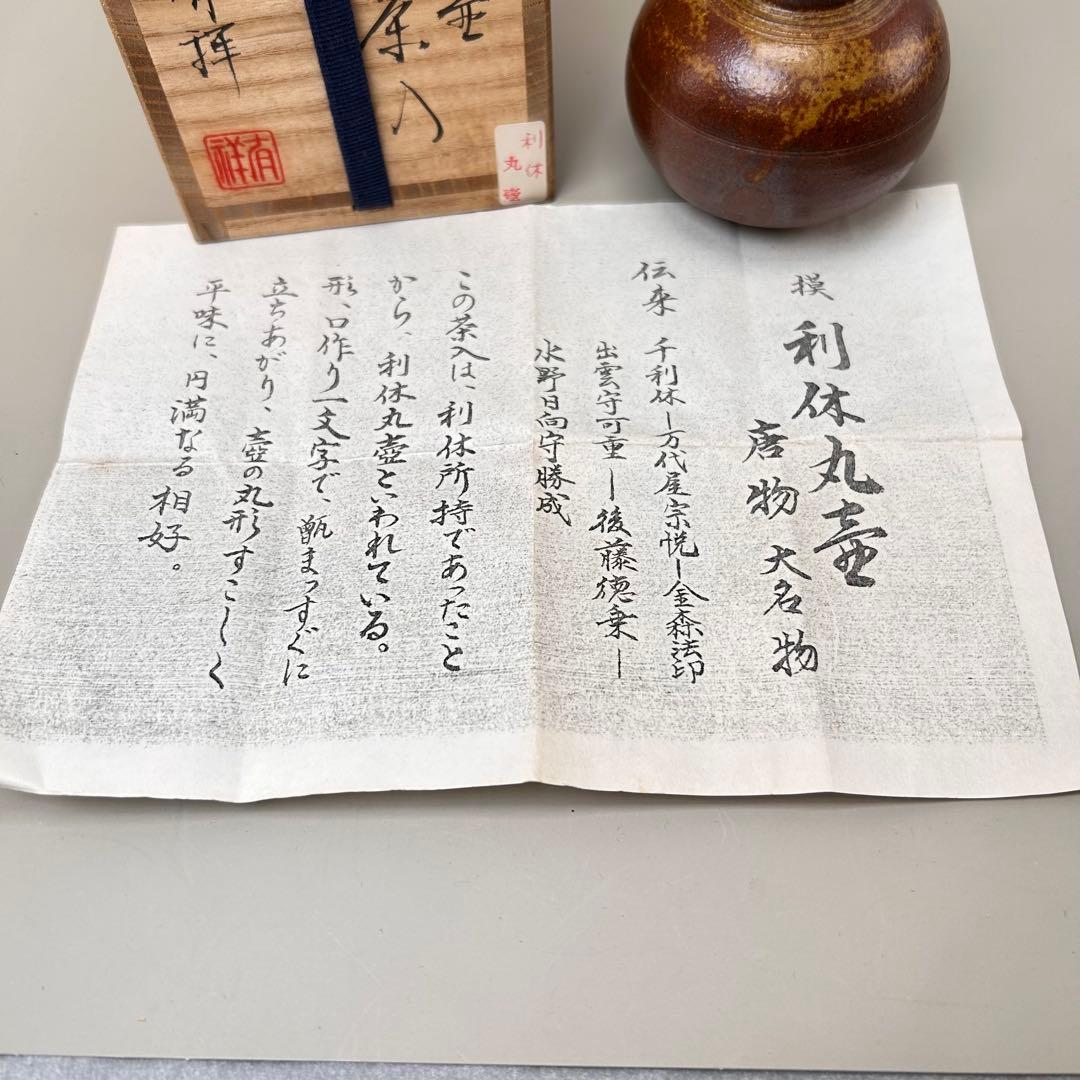 模 利休丸壺
唐物 大名物
伝来 千利休ー万代屋宗悦ー金森法印
出雲守可重ー後藤徳乗ー
水野日向守勝成
この茶入は、利休所持であったこと
から、利休丸壺といわれている。
形、口作り一文字で、甑まっすぐに
立ちあがり、壺の丸形すこしく
平味に、円満なる相好。
壺
茶入
祥
有祥
利休
丸壺